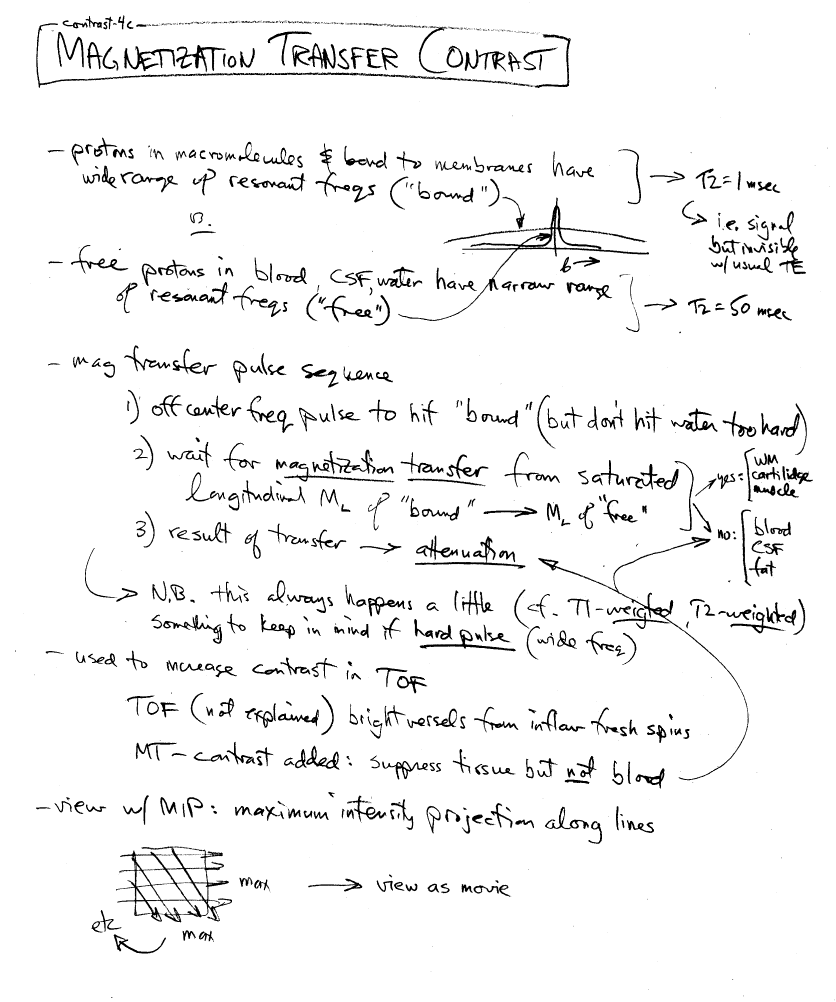 contrast-4c
MAGNETIZATION TRANSFER CONTRAST
- protons in macromolecules & bound to membranes have
wide range of resonant freqs ("bound")
→ T2=1 msec
↳ i.e. signal
but invisible
w/ usual TE
- free protons in blood, CSF, water have narrow range
of resonant freqs ("free")
→ T2=50 msec
- mag transfer pulse sequence
1) off center freq pulse to hit "bound" (but don't hit water too hard)
2) wait for magnetization transfer from saturated
longitudinal ML of "bound" → ML of "free"
yes: WM
cartilidge
muscle
no: blood
CSF
fat
3) result of transfer → attenuation
→ N.B. this always happens a little (cf. T1-weigted, T2-weighted)
something to keep in mind if hard pulse (wide freq)
- used to increase contrast in TOF
TOF (not explained) bright vessels from inflow fresh spins
MT-contrast added: suppress tissue but not blood
- view w/ MIP: maximum intensity projection along lines
max → view as movie
etc
max